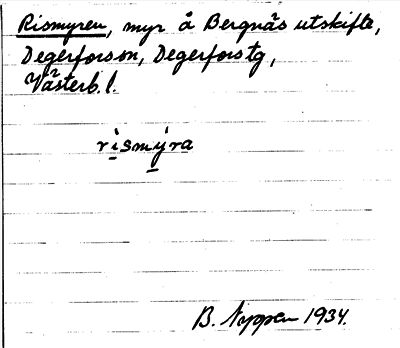 Rismyren, myr å Bergnäs utskifte,
Degerforssn, Degerforstg,
Västerb. l.
rismýra
B. 1934.